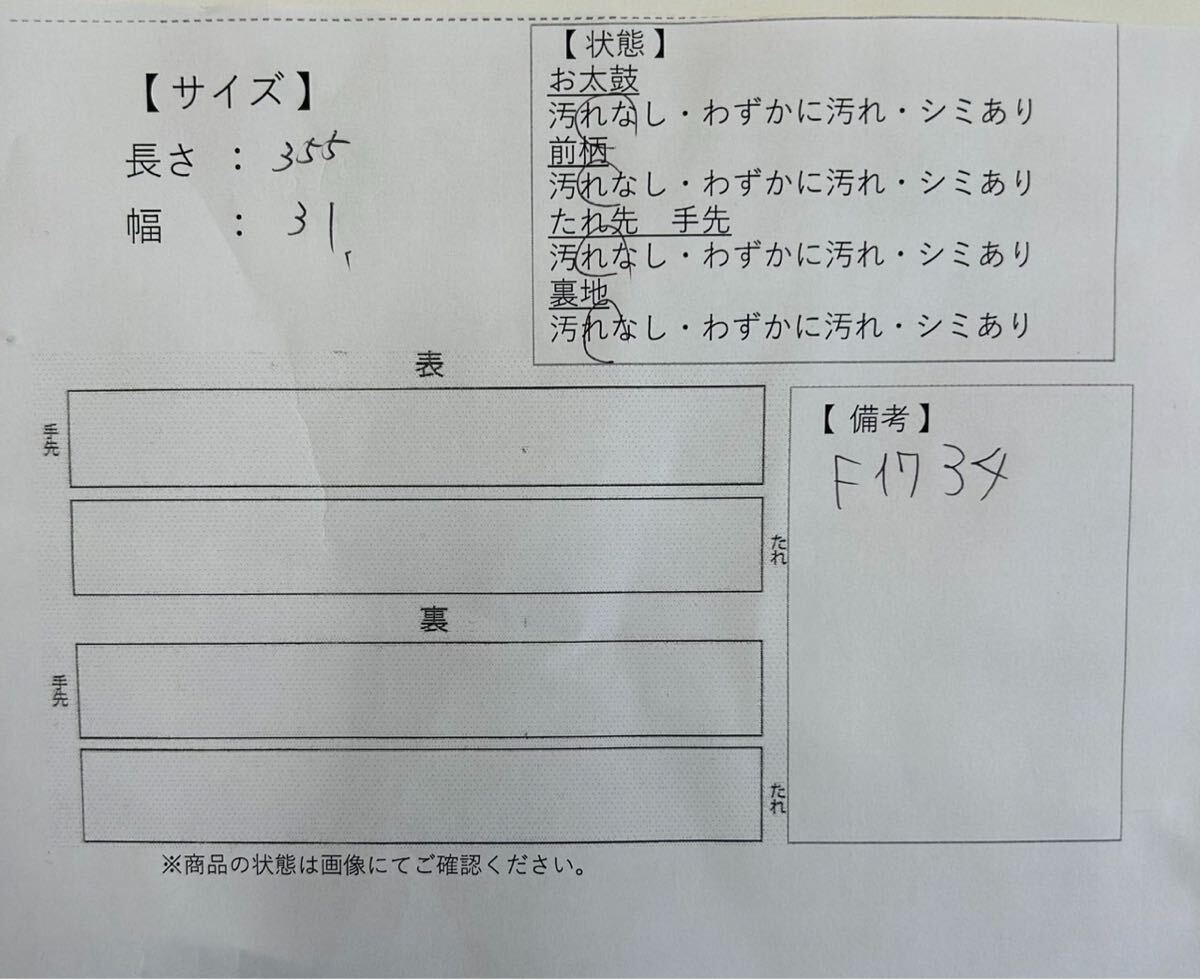 【サイズ】
長さ ： 355
幅 ： 31
【状態】
お太鼓
汚れなし・わずかに汚れ・シミあり
前柄
汚れなし・わずかに汚れ・シミあり
たれ先 手先
汚れなし・わずかに汚れ・シミあり
裏地
汚れなし・わずかに汚れ・シミあり
表
手先
たれ
裏
手先
たれ
【備考】
F1734
※商品の状態は画像にてご確認ください。